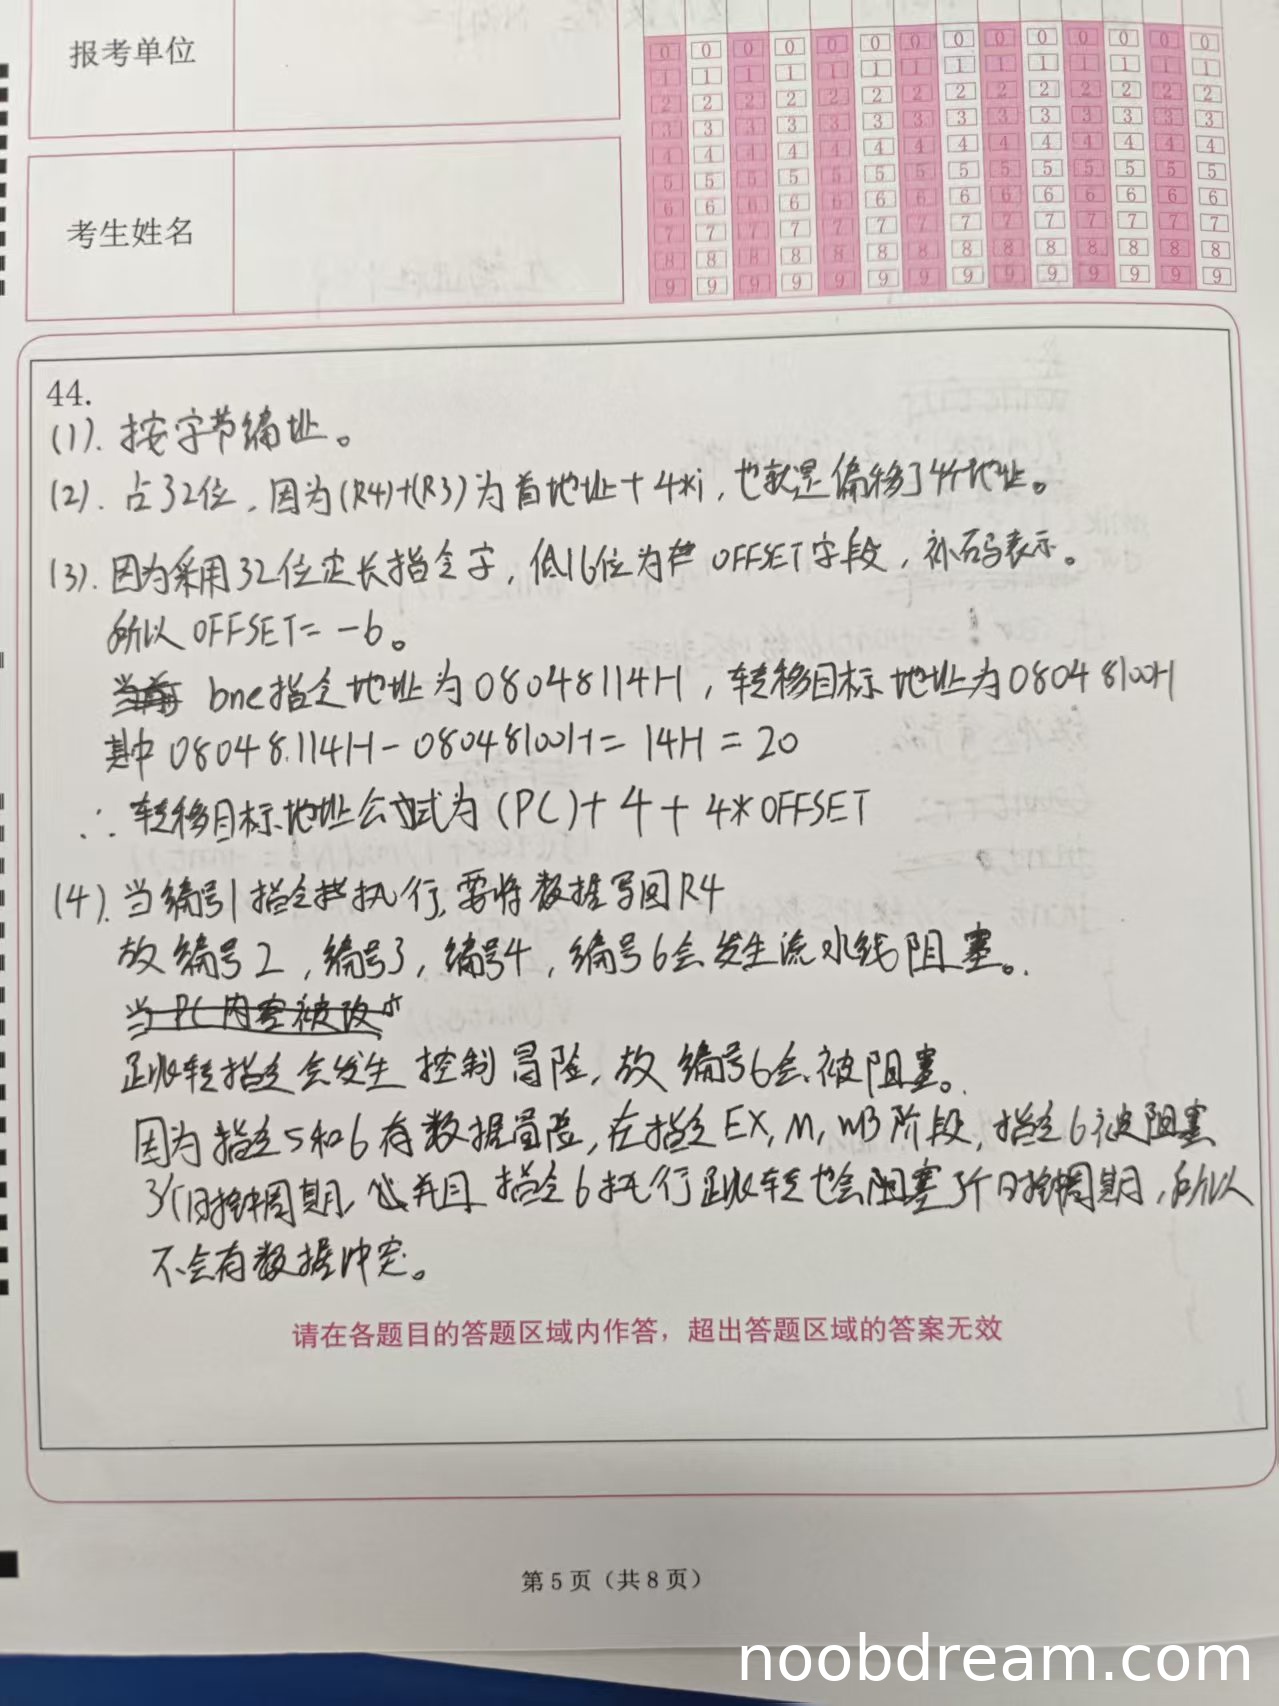 报考单位
考生姓名
0 0 0 0 0 0 0 0 0 0 0 0 0 0
1 1 1 1 1 1 1 1 1 1 1 1 1 1
2 2 2 2 2 2 2 2 2 2 2 2 2 2
3 3 3 3 3 3 3 3 3 3 3 3 3 3
4 4 4 4 4 4 4 4 4 4 4 4 4 4
5 5 5 5 5 5 5 5 5 5 5 5 5 5
6 6 6 6 6 6 6 6 6 6 6 6 6 6
7 7 7 7 7 7 7 7 7 7 7 7 7 7
8 8 8 8 8 8 8 8 8 8 8 8 8 8
9 9 9 9 9 9 9 9 9 9 9 9 9 9
44.
(1). 按字节编址。
(2). 占32位，因为(R4)+(R3)为首地址+4*i，也就是偏移了4个地址。
(3). 因为采用32位定长指令字，低16位为 OFFSET字段，补码表示。
所以 OFFSET= -6。
bne指令地址为08048114H，转移目标地址为08048100H
其中 08048114H-08048100H= 14H = 20
∴ 转移目标地址公式为 (PC)+4+4*OFFSET
(4). 当编号1指令执行，要将数据写回R4
故编号2，编号3，编号4，编号6会发生流水线阻塞。
当PC内容被改
跳转指令会发生控制冒险，故编号6会被阻塞。
因为指令5和6存数据冒险，在指令EX, M, WB阶段，指令6被阻塞
3个时钟周期，并且指令6执行跳转也会阻塞3个时钟周期，所以
不会有数据冲突。
请在各题目的答题区域内作答，超出答题区域的答案无效
第5页（共8页）
noobdream.com